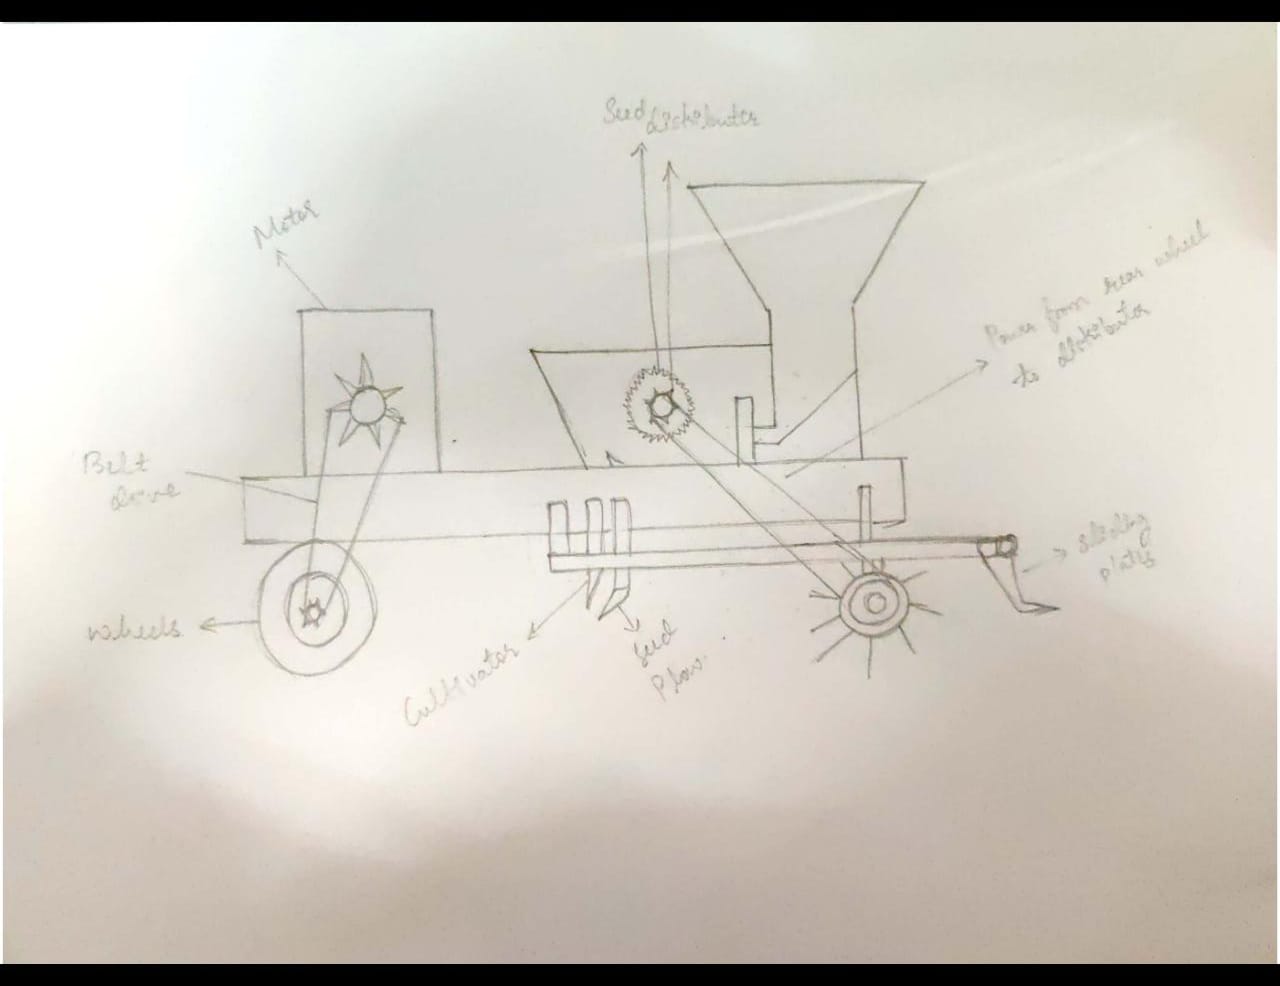 Seed distributer
Motor
Power from rear wheel
to distributor
Belt
drive
wheels
Cultivator
Seed
Plow.
plates